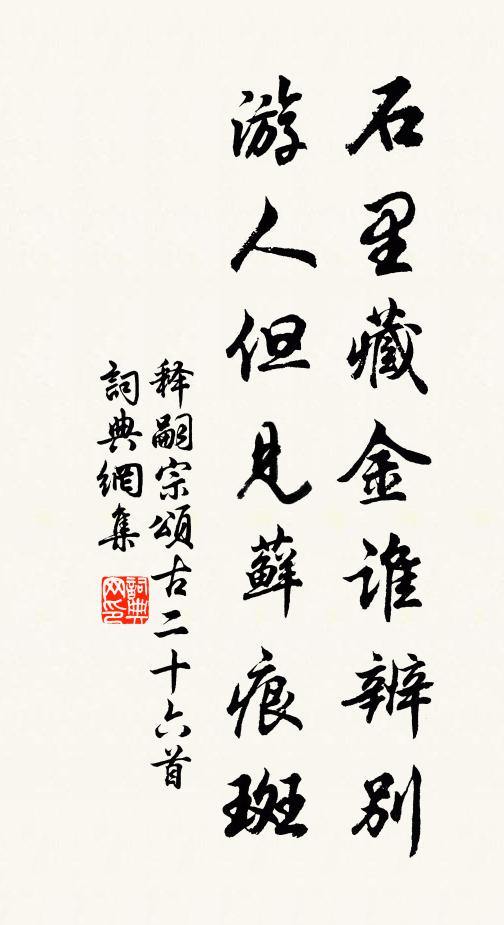 石里藏金谁辨别
游人但见藓痕斑
释嗣宗颂古二十六首
词典網集
詞典
网印